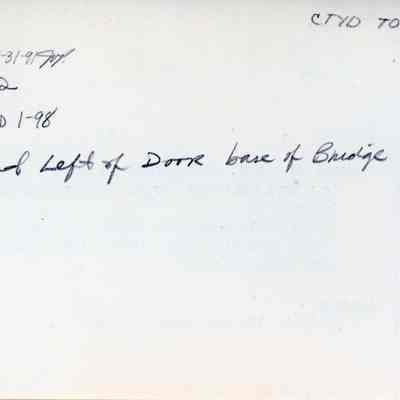 CTYD TO
-31-91
2
D 1-98
d Left of Door base of Bridge